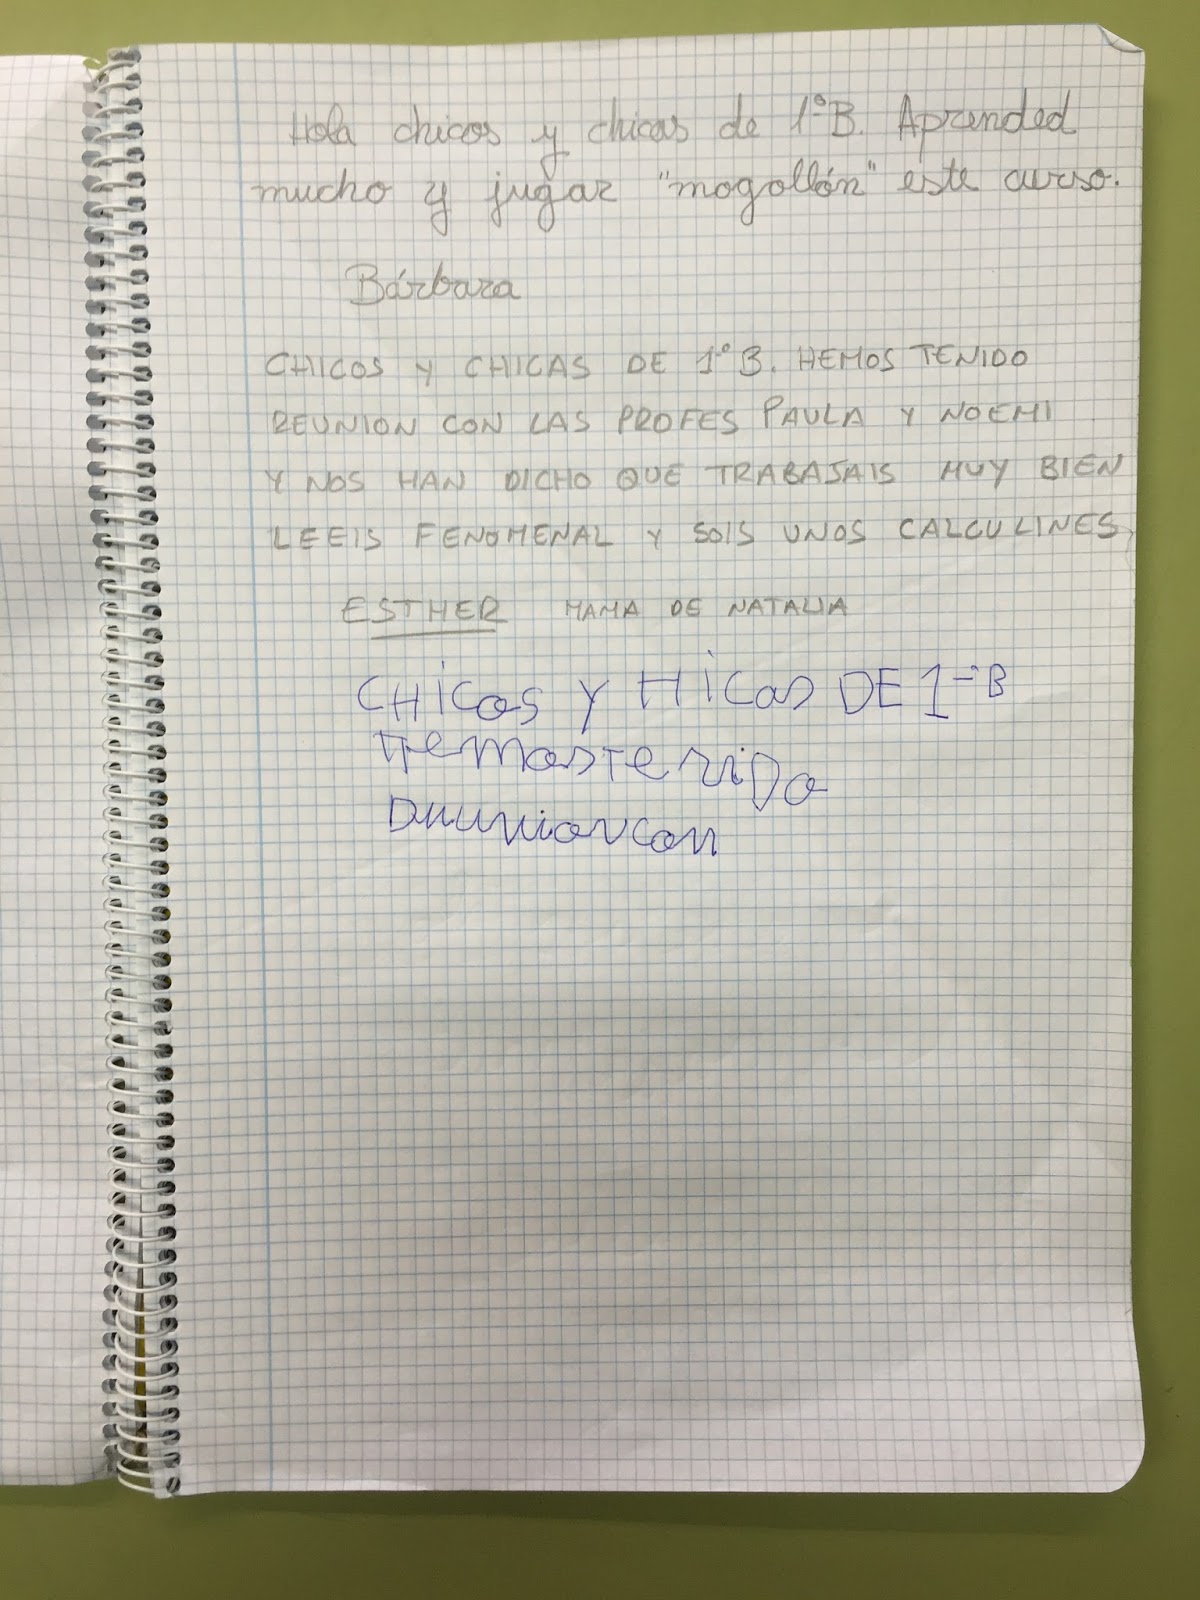 Hola chicos y chicas de 1ºB. Aprended
mucho y jugar "mogollón" este curso.
Bárbara
CHICOS Y CHICAS DE 1º B. HEMOS TENIDO
REUNION CON LAS PROFES PAULA Y NOEMI
Y NOS HAN DICHO QUE TRABAJAIS MUY BIEN
LEEIS FENOMENAL Y SOIS UNOS CALCULINES
ESTHER MAMA DE NATALIA
CHICOS Y HICAS DE 1º B
HEMOSTENIDO